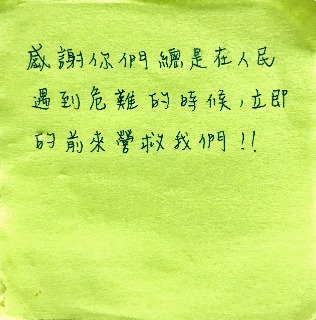 感謝你們總是在人民
遇到危難的時候，立即
的前來營救我們!!